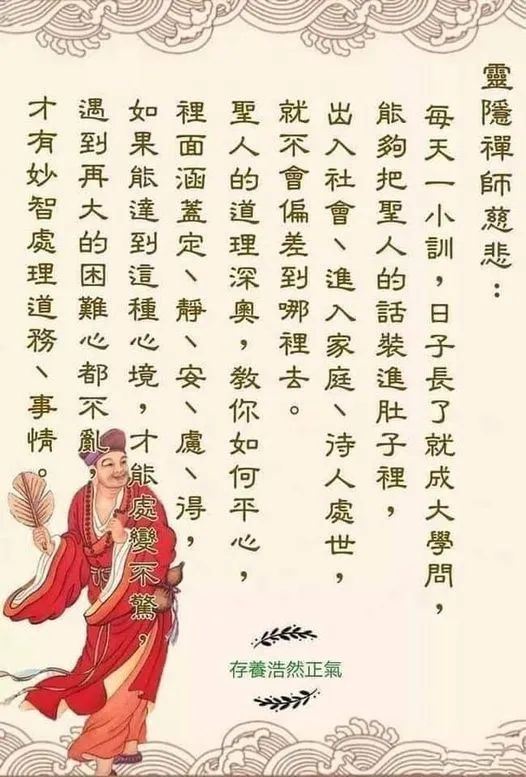 靈隱禪師慈悲：
每天一小訓，日子長了就成大學問，
能夠把聖人的話裝進肚子裡，
出入社會、進入家庭、待人處世，
就不會偏差到哪裡去。
聖人的道理深奧，教你如何平心，
裡面涵蓋定、靜、安、慮、得，
如果能達到這種心境，才能處變不驚，
遇到再大的困難心都不亂，
才有妙智處理道務、事情。
存養浩然正氣